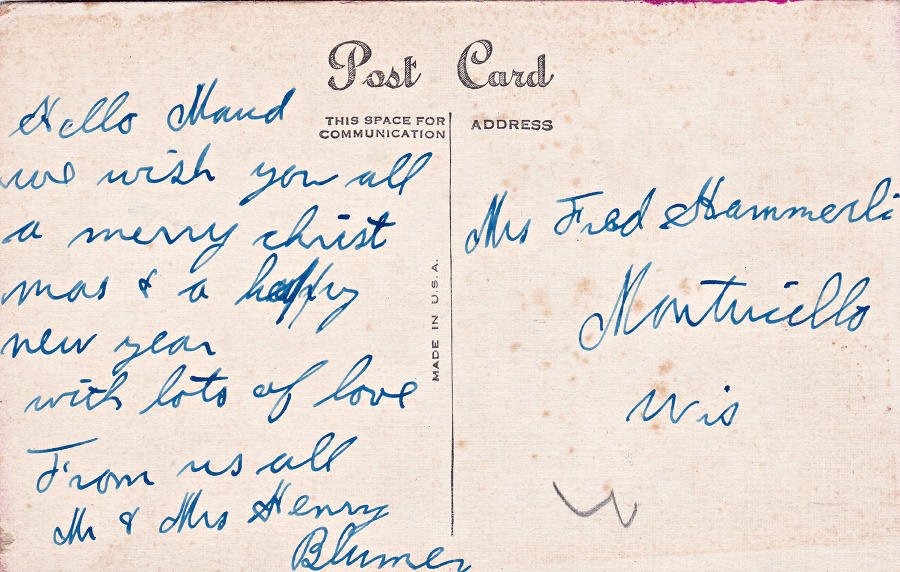 Post Card
THIS SPACE FOR
COMMUNICATION
ADDRESS
Hello Maud
we wish you all
a merry christ
mas & a happy
new year
with lots of love
From us all
Mr & Mrs Henry
Blumer
MADE IN U.S.A.
Mrs Fred Hammerli
Monticello
Wis